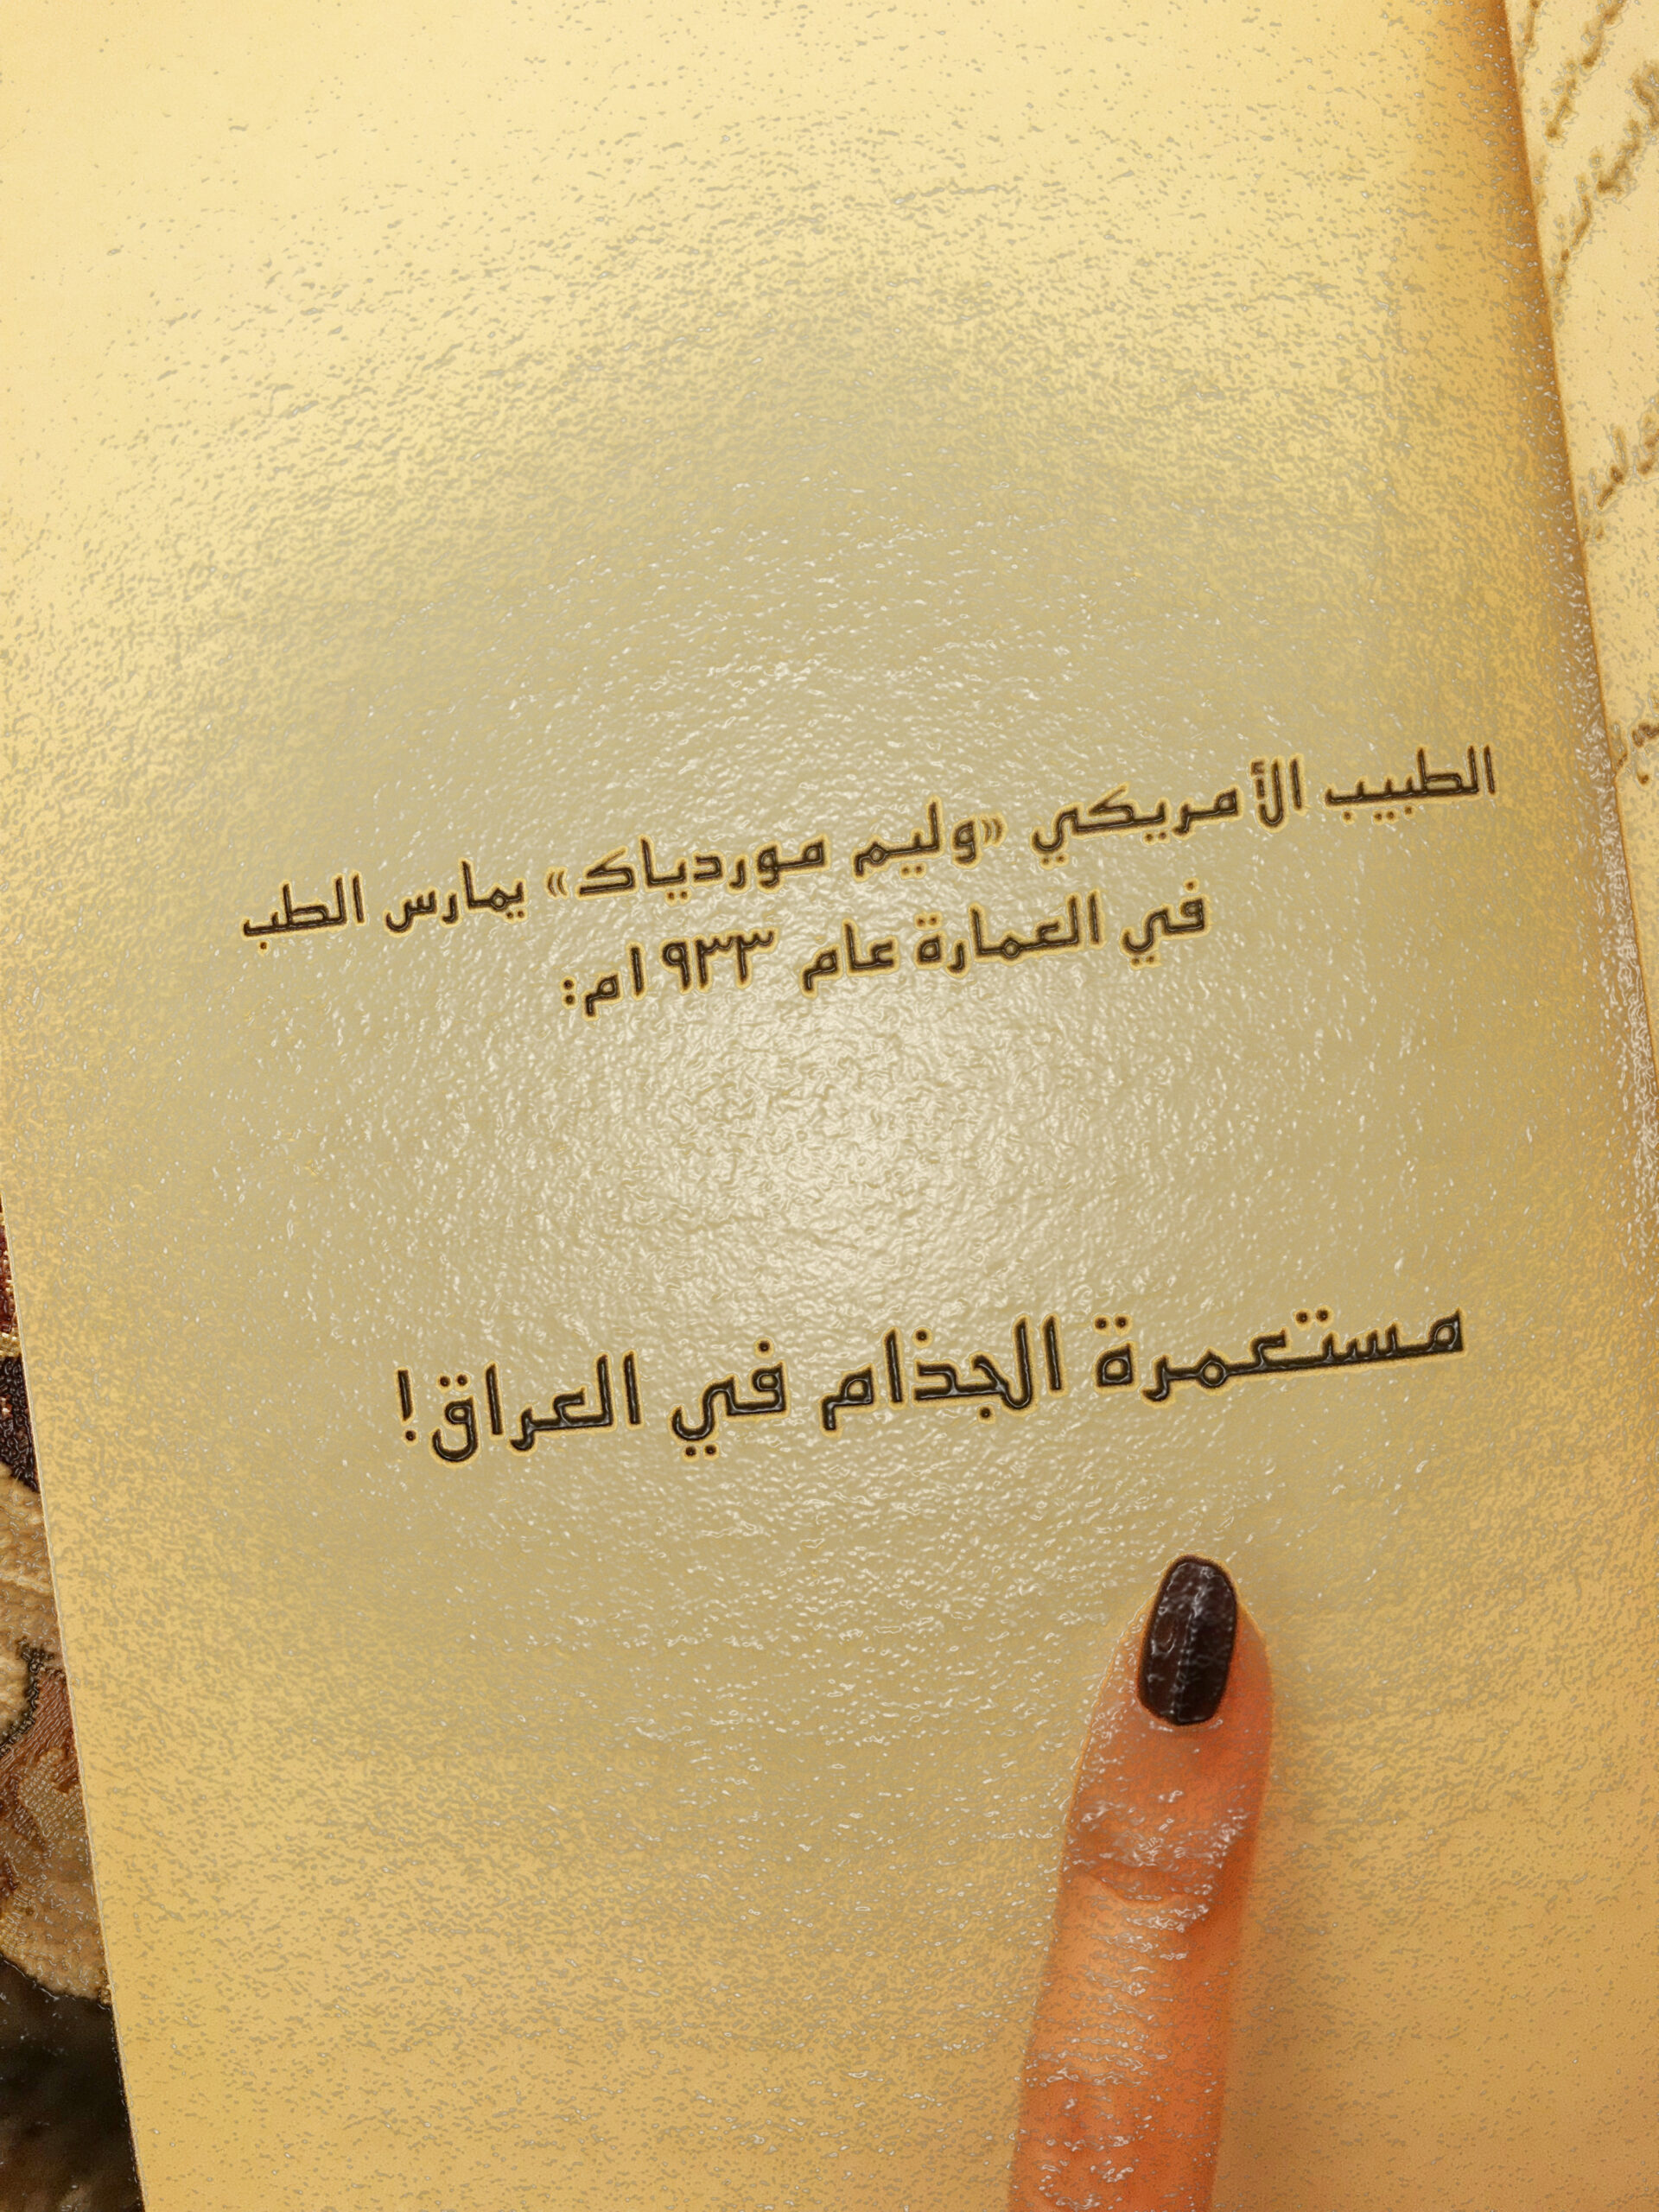 الطبيب الأمريكي «وليم مورديا‌ك» يمارس الطب
في العمارة عام ١٩٣٣م:
مستعمرة الجذام في العراق!